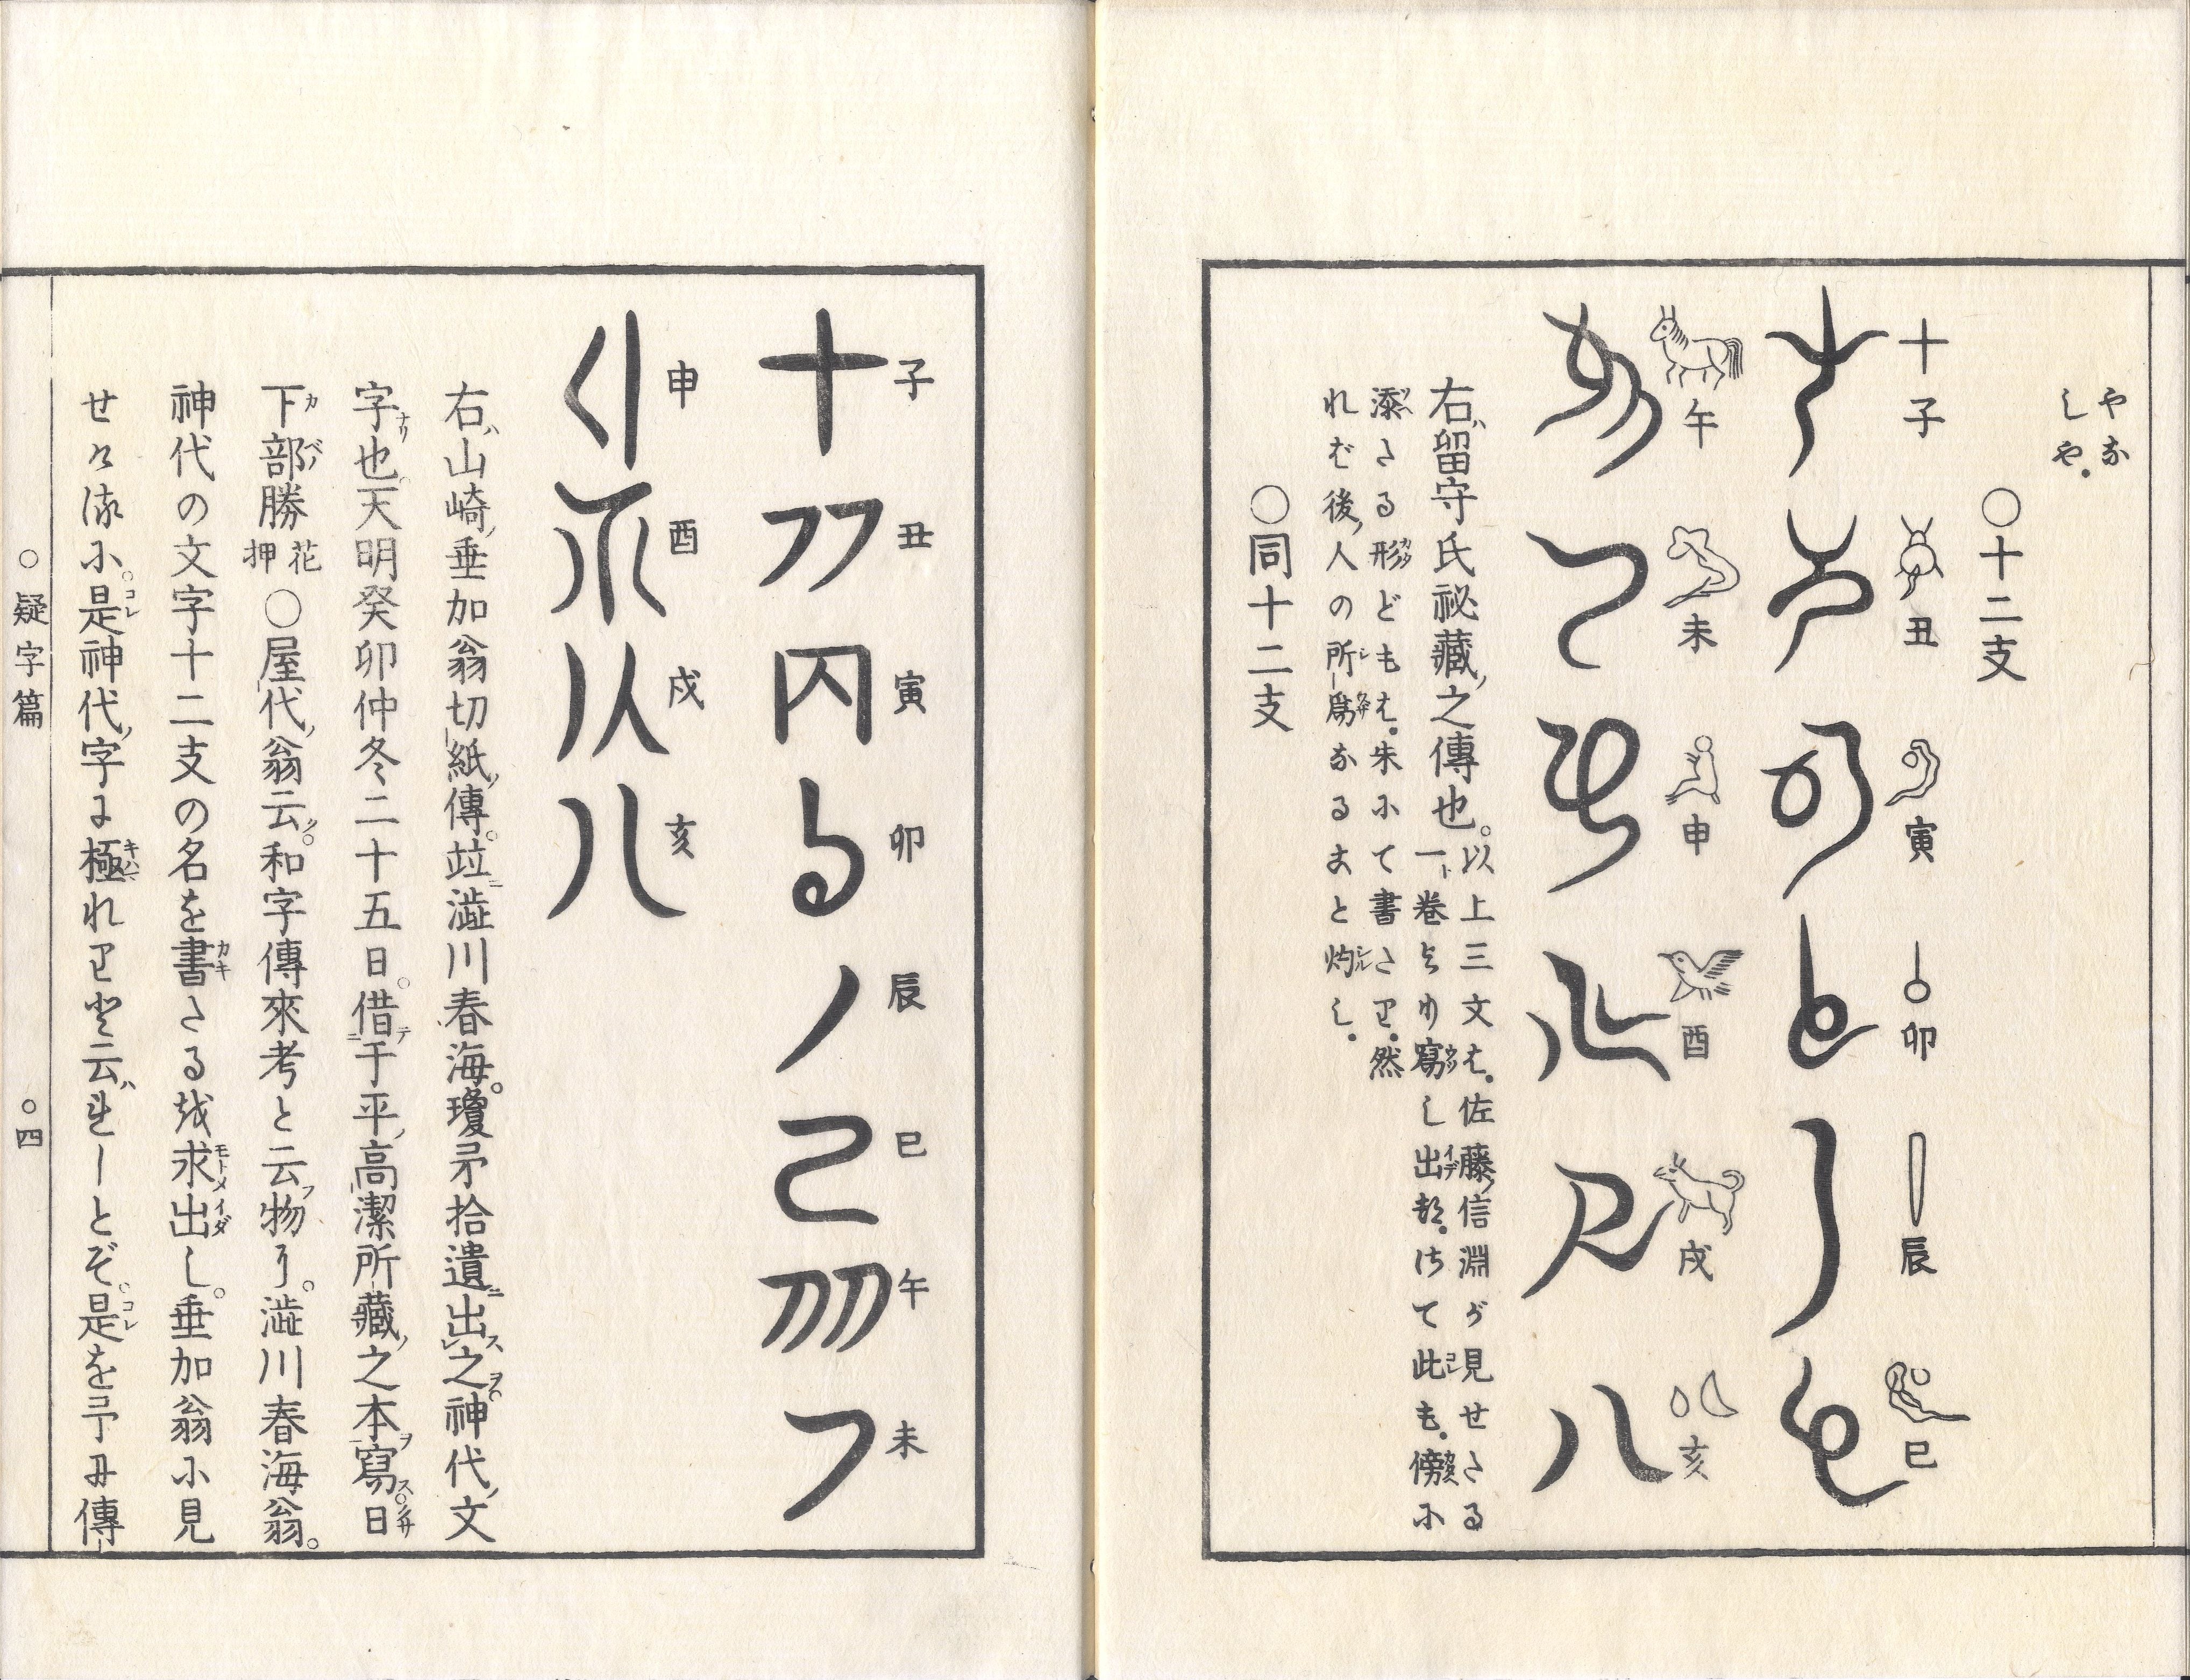 やな
しや。
○十二支
十子
丑
寅
卯
辰
巳
午
未
申
酉
戌
亥
右ハ留守氏祕藏ノ之傳也。
以上三文は。佐藤ノ信淵が見せたる
一ト巻より寫し出せり。此も。傍に
添たる形どもは。朱にて書たり。然
れば後ノ人の所爲なること灼し。
○同十二支
子
丑
寅
卯
辰
巳
午
未
申
酉
戌
亥
右ハ山崎ノ垂加翁切紙ノ傳。竝ニ澁川春海。瓊矛拾遺ニ出ス之ヲ。神代ノ文
字ナリ也。天明癸卯仲冬二十五日。借テ于平ノ高潔所藏ノ之本ヲ寫ス。日
下部勝 花押 ○屋代ノ翁云ク。和字傳來考と云フ物り。澁川春海翁。
神代の文字十二支の名を書たる求出し。垂加翁に見
せ小。是神代ノ字に極れりと云ハれしとぞ。是を傳
○疑字篇
○四